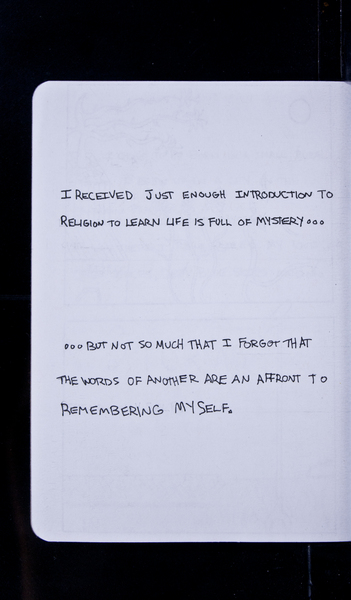 I RECEIVED JUST ENOUGH INTRODUCTION TO
RELIGION TO LEARN LIFE IS FULL OF MYSTERY...
...BUT NOT SO MUCH THAT I FORGOT THAT
THE WORDS OF ANOTHER ARE AN AFFRONT TO
REMEMBERING MYSELF.